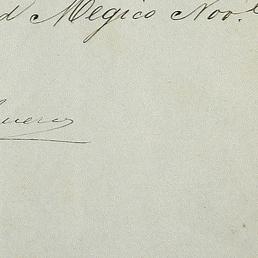 d Megico Nov.
uero